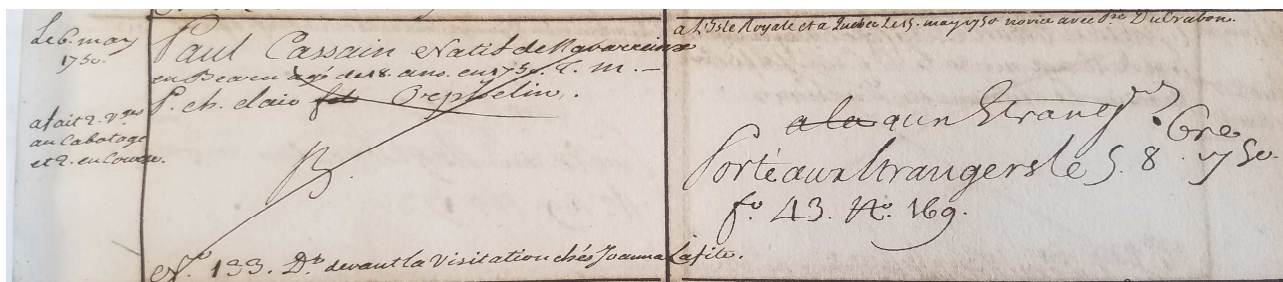 Le 6. may
1750.
a fait 2. v.ges
au Cabotage
et 2. en Cours.
Paul Cassain Natif de Navarreinx
en Bearn agé de 18. ans. en 1750. T. m. —
P. ch. clair fils Orephelin.
B.
N.o 133. D.t devant la Visitation chés Joanna Lafite.
a L'Isle Royale et a Quebec Le 15. may 1750 novice avec P.re Ducrabon.
a la aux Etrang.rs
Porté aux Etrangers le 5. 8.bre 1750.
f.o 43. N.o 169.